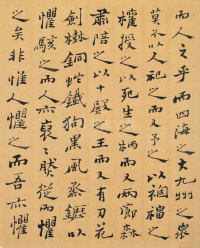 而人之乎而四海之大九州之衆
莫不以人祀之而又予之以禍福之
權授之以死生之柄而又郭森
肅陪之以十殿之王而又有刀花
劍樹銅蛇鐵狗黑風蒸鑊以
懼駭之而人亦裒裒然從而懼
之矣非惟人懼之而吾亦懼